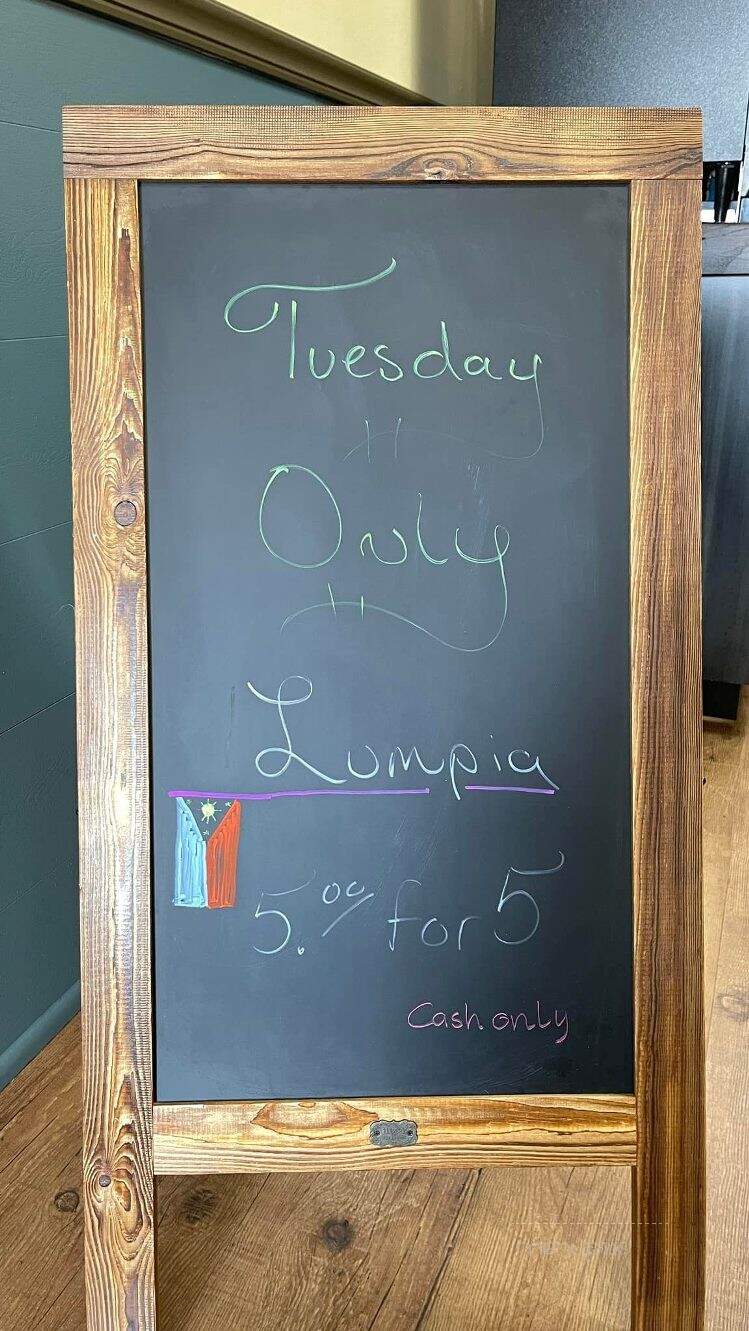 Tuesday
Only
Lumpia
5.00 for 5
Cash only